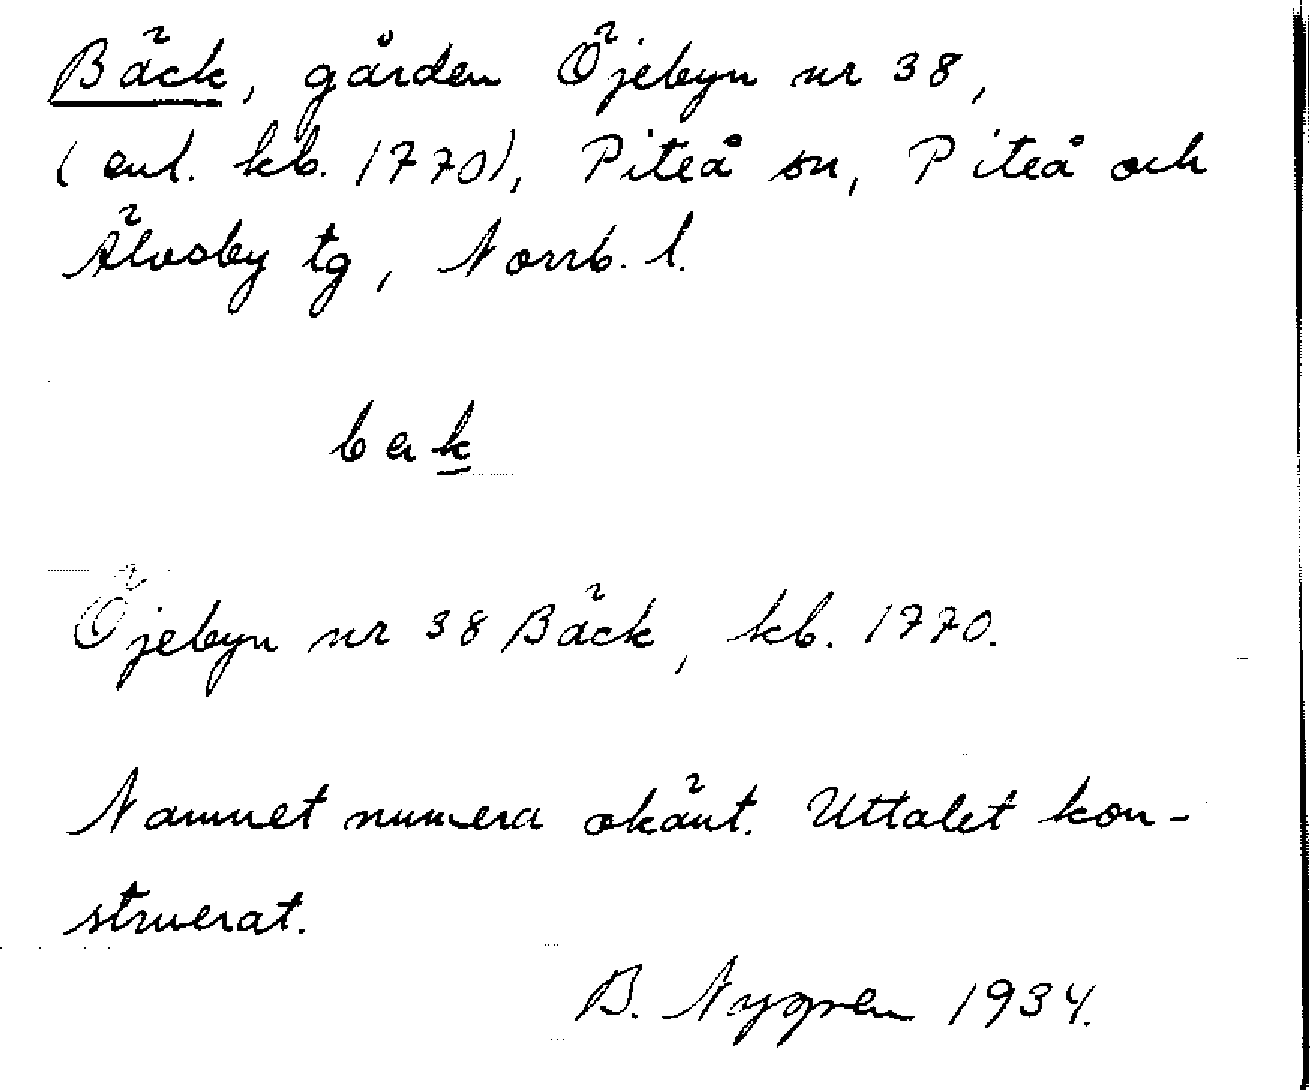 Bäck, gården Öjebyn nr 38,
(enl. kb. 1770), Piteå sn, Piteå och
Älvsby tg, Norrb. l.
bak
Öjebyn nr 38 Bäck, kb. 1770.
Namnet numera okänt. Uttalet kon-
struerat.
B. Nygren 1934.